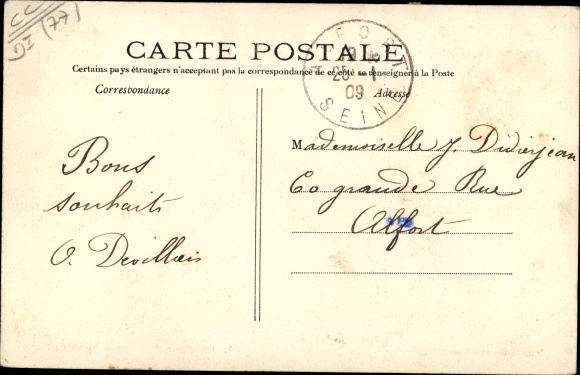 CC
DI (77)
CARTE POSTALE
Certains pays étrangers n'acceptent pas la correspondance de ce côté se renseigner à la Poste
Correspondance
Adresse
ALFORT
25 - 1
09
SEINE
Bons
souhaits
O. Devillers
Mademoiselle J. Didierjean
60 grande Rue
Alfort